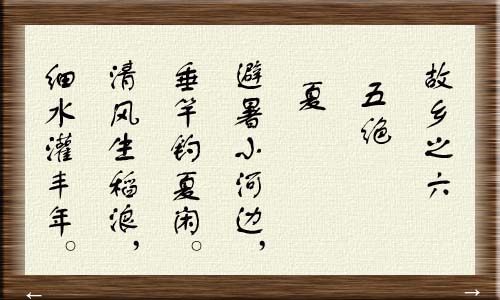 故乡之六
五绝
夏
避暑小河边，
垂竿钓夏闲。
清风生稻浪，
细水灌丰年。
←
→